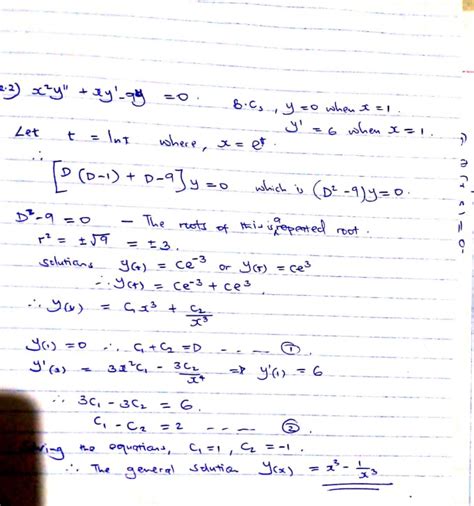 2.2) x²y'' + xy' - 9y = 0. B.Cs, y = 0 when x = 1.
y' = 6 when x = 1.
Let t = lnx where, x = eᵗ.
∴ [D (D-1) + D - 9] y = 0 which is (D² - 9) y = 0.
D² - 9 = 0 — The roots of this is a repeated root.
r² = ± √9 = ± 3.
solutions y(t) = ce⁻³ or y(t) = ce³
∴ y(t) = ce⁻³ + ce³
∴ y(x) = C₁x³ + C₂/x³
y(1) = 0 ∴ C₁ + C₂ = 0 ---- ①.
y'(x) = 3x²C₁ - 3C₂/x⁴ ⇒ y'(1) = 6
∴ 3C₁ - 3C₂ = 6.
C₁ - C₂ = 2 ---- ②.
the equations, C₁ = 1, C₂ = -1.
∴ The general solution y(x) = x³ - 1/x³